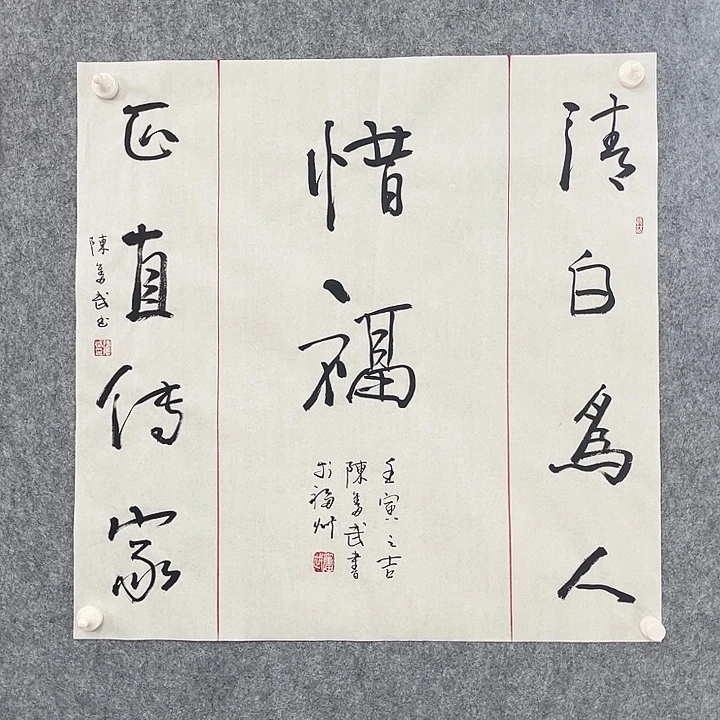 清白為人
惜福
壬寅之吉
陳武書
於福州
正直傳家
陳武书